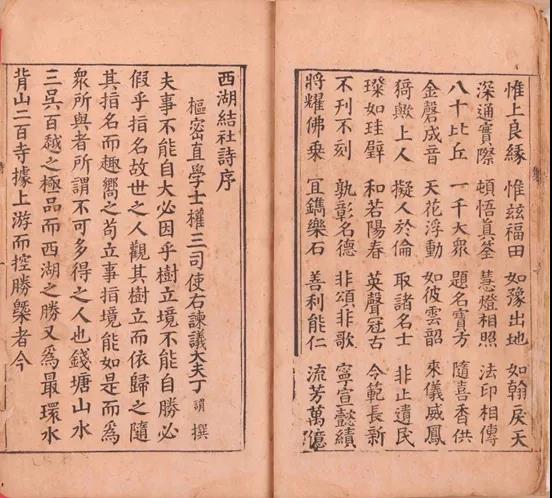 惟上良緣 惟茲福田 如豫出地 如翰戾天
深通實際 頓悟真筌 慧燈相照 法印相傳
八十比丘 一千大眾 題名寶方 隨喜香供
金磬成音 天花浮動 如彼雲韶 來儀威鳳
猗歟上人 擬人於倫 取諸名士 非止遺民
璨如珪璧 和若陽春 英聲冠古 令範長新
不刊不刻 孰彰名德 非頌非歌 寧宣懿績
將耀佛乘 冝鐫樂石 善利能仁 流芳萬億
西湖結社詩序
樞密直學士權三司使右諫議大夫丁 謂 撰
夫事不能自大必因乎樹立境不能自勝必
假乎指名故世之人觀其樹立而依歸之隨
其指名而趣嚮之苟立事指境能如是而爲
衆所與者所謂不可多得之人也錢塘山水
三吳百越之極品而西湖之勝又爲最環水
背山二百寺據上游而控勝槩者今